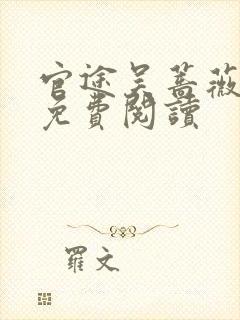 官途吴蔷薇
免費閱讀
羅文